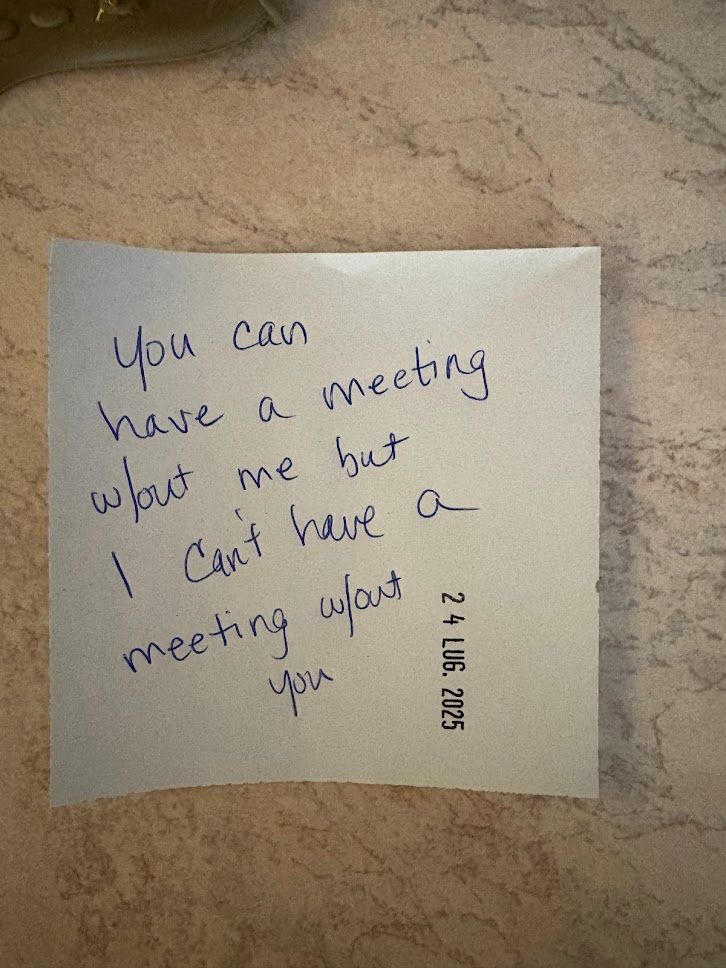 You can
have a meeting
w/out me but
I can't have a
meeting w/out
you
24 LUG. 2025